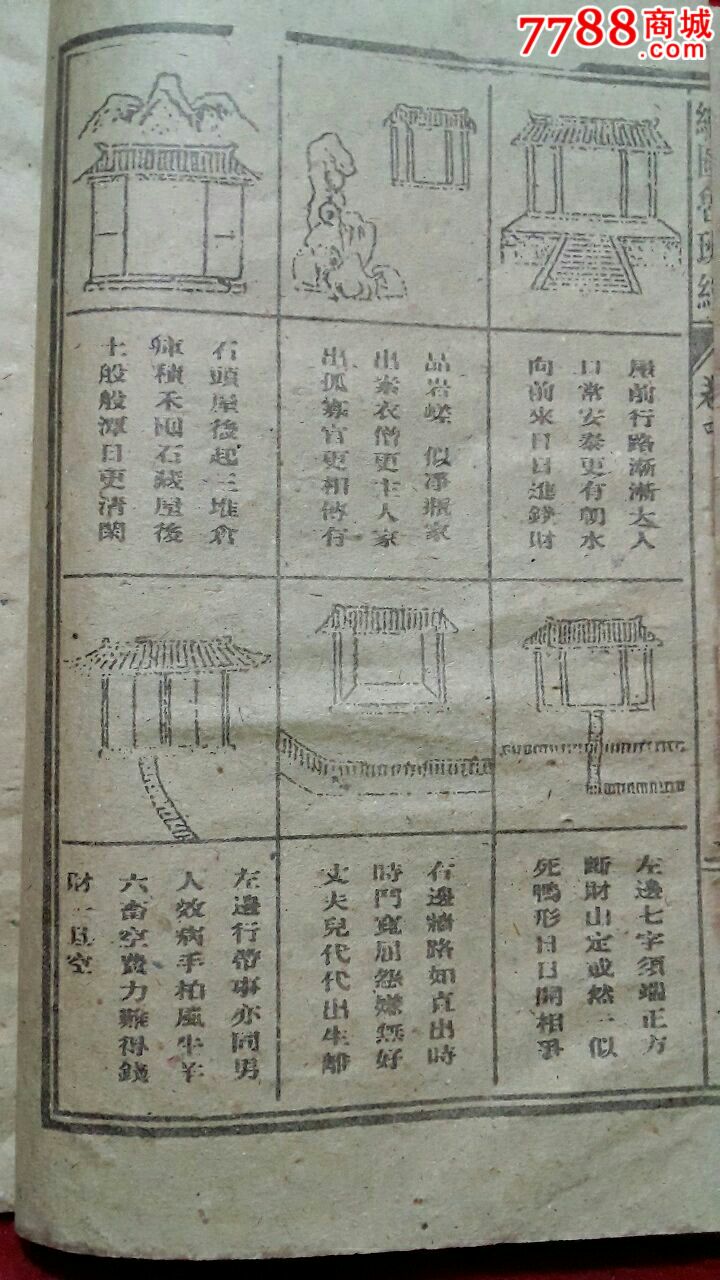 7788商城
.com
繪圖魯班經
屋前行路漸漸大人
口常安泰更有朝水
向前來日日進錢財
品岩嵯 似淨瓶家
出素衣僧更主人家
出孤寡官更相傳有
石頭屋後起三堆倉
庫積禾囤石藏屋後
般般潭日更清閑
左邊七字須端正方
斷財山定或然一似
死鴨形日日鬧相爭
右邊牆路如直出時
時門寬屈怨嫌無好
丈夫兒代代出生離
左邊行帶事亦同男
人效病手柏風牛羊
六畜空費力難得錢
財一旦空